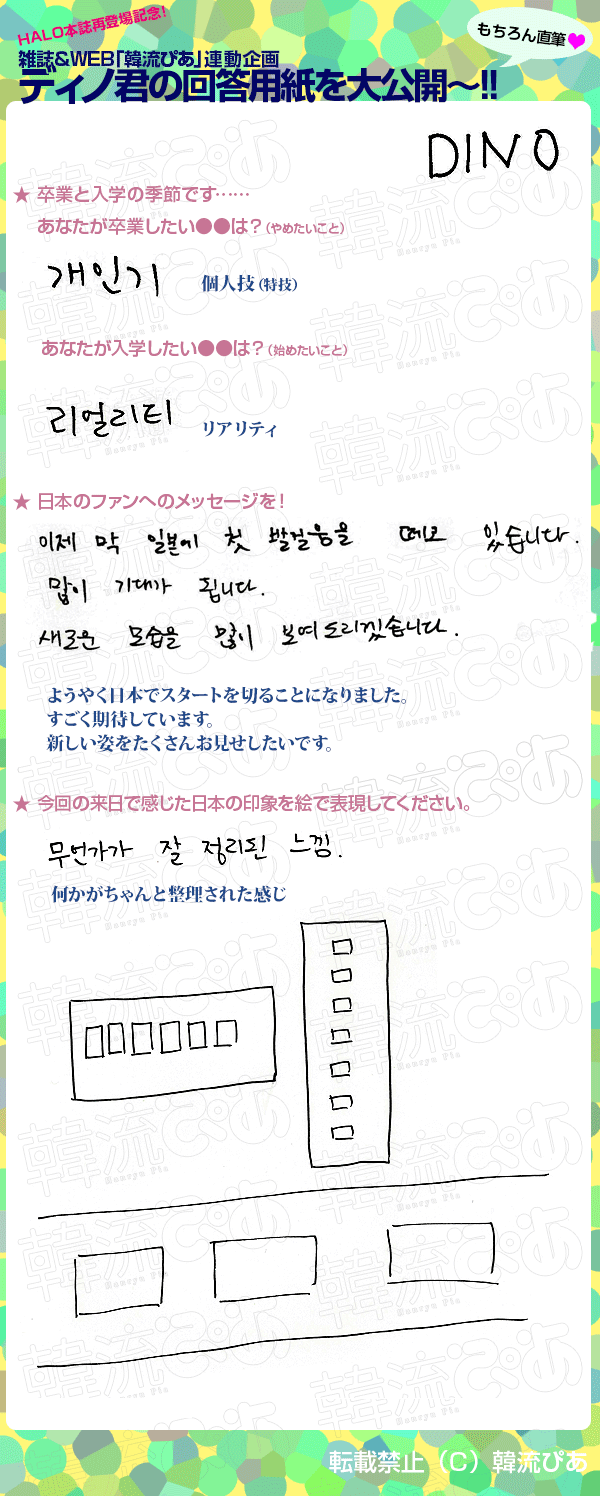 HALO本誌再登場記念!
雑誌&WEB「韓流ぴあ」連動企画
ディノ君の回答用紙を大公開〜!!
もちろん直筆
DINO
★ 卒業と入学の季節です……
あなたが卒業したい●●は?(やめたいこと)
개인기 個人技(特技)
あなたが入学したい●●は?(始めたいこと)
리얼리티 リアリティ
★ 日本のファンへのメッセージを!
이제 막 일본에 첫 발걸음을 떼고 있습니다.
많이 기대가 됩니다.
새로운 모습을 많이 보여드리겠습니다.
ようやく日本でスタートを切ることになりました。
すごく期待しています。
新しい姿をたくさんお見せしたいです。
★ 今回の来日で感じた日本の印象を絵で表現してください。
무언가가 잘 정리된 느낌.
何かがちゃんと整理された感じ
転載禁止(C)韓流ぴあ
韓流ぴあ
Hanryu Pia